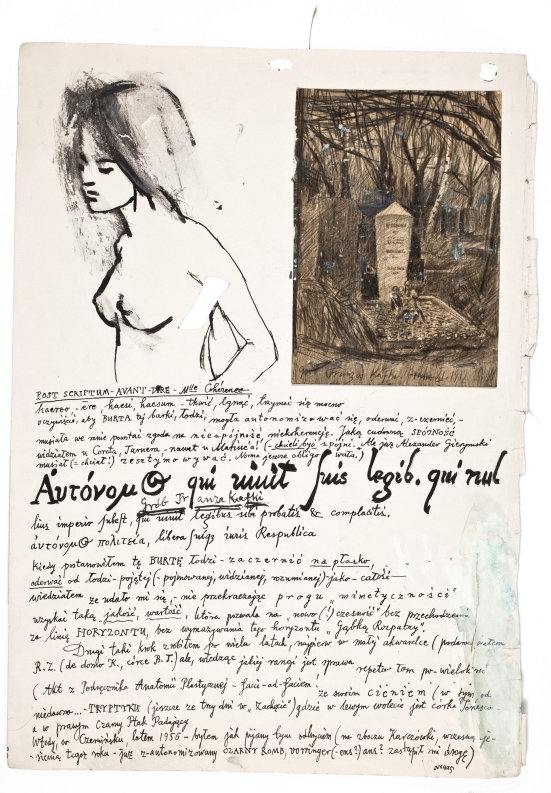 POST SCRIPTUM-AVANT- - Mlle Cohérence
haereo, -ere, haesi, haesum - tkwić, lgnąć, trzymać się mocno
oczywiście, aby BURTA tej barki, łodzi, mogła autonomizować się, oderwać, z-czernieć, -
musiała we mnie powstać zgoda na niespójność, niekoherencję. Jaką cudowną SPÓJNOŚĆ
widziałem u Corota, Turnera - nawet u Matisse'a! (- chcieli być spójni. Ale już Alexander Gierymski
musiał (= chciał!) zesztymowywać.
Αὐτόνομος qui vivit suis legib. qui nul
Grób Franza Kafki
lius imperio subest, qui vivit legibus sibi probatis & complacitis.
αὐτόνομος πολιτεία, libera suique iuris Respublica
Kiedy postanowiłem tę BURTĘ łodzi - zaczernić na płasko,
oderwać od łodzi - pojętej (- pojmowanej, widzianej, rozumianej) jako - całość -
wiedziałem że udało mi się, - nie przekraczając progu „mimetyczności"
uzyskać taką jakość, wartość, która pozwala na „nowo(!)czesność" bez przechodzenia
za linię HORYZONTU, bez wymazywania tego horyzontu „Gąbką Rozpaczy".
Drugi taki krok zrobiłem po wielu latach, najpierw w małej akwarelce (podarowałem
R.Z. (de domo K., córce B.T.) ale, wiedząc jakiej rangi jest sprawa repetowałem po-wielokroć
(Akt z Podręcznika Anatomii Plastycznej - facie-ad-faciem ze swoim cieniem (w tym, od
niedawna...- TRYPTYKU (jeszcze ze trzy dni w „Zachęcie") gdzie w lewym wolecie jest córka Ionesco
a w prawym Czarny Ptak Padający
Wtedy, w Czerwińsku, latem 1956 - byłem jak pijany tym odkryciem (na zboczu Karczówki, wrzesną je-
sienią tegoż roku - już z-autonomizowany CZARNY ROMB, Worringer (-ens?) ans? zastąpił mi drogę)